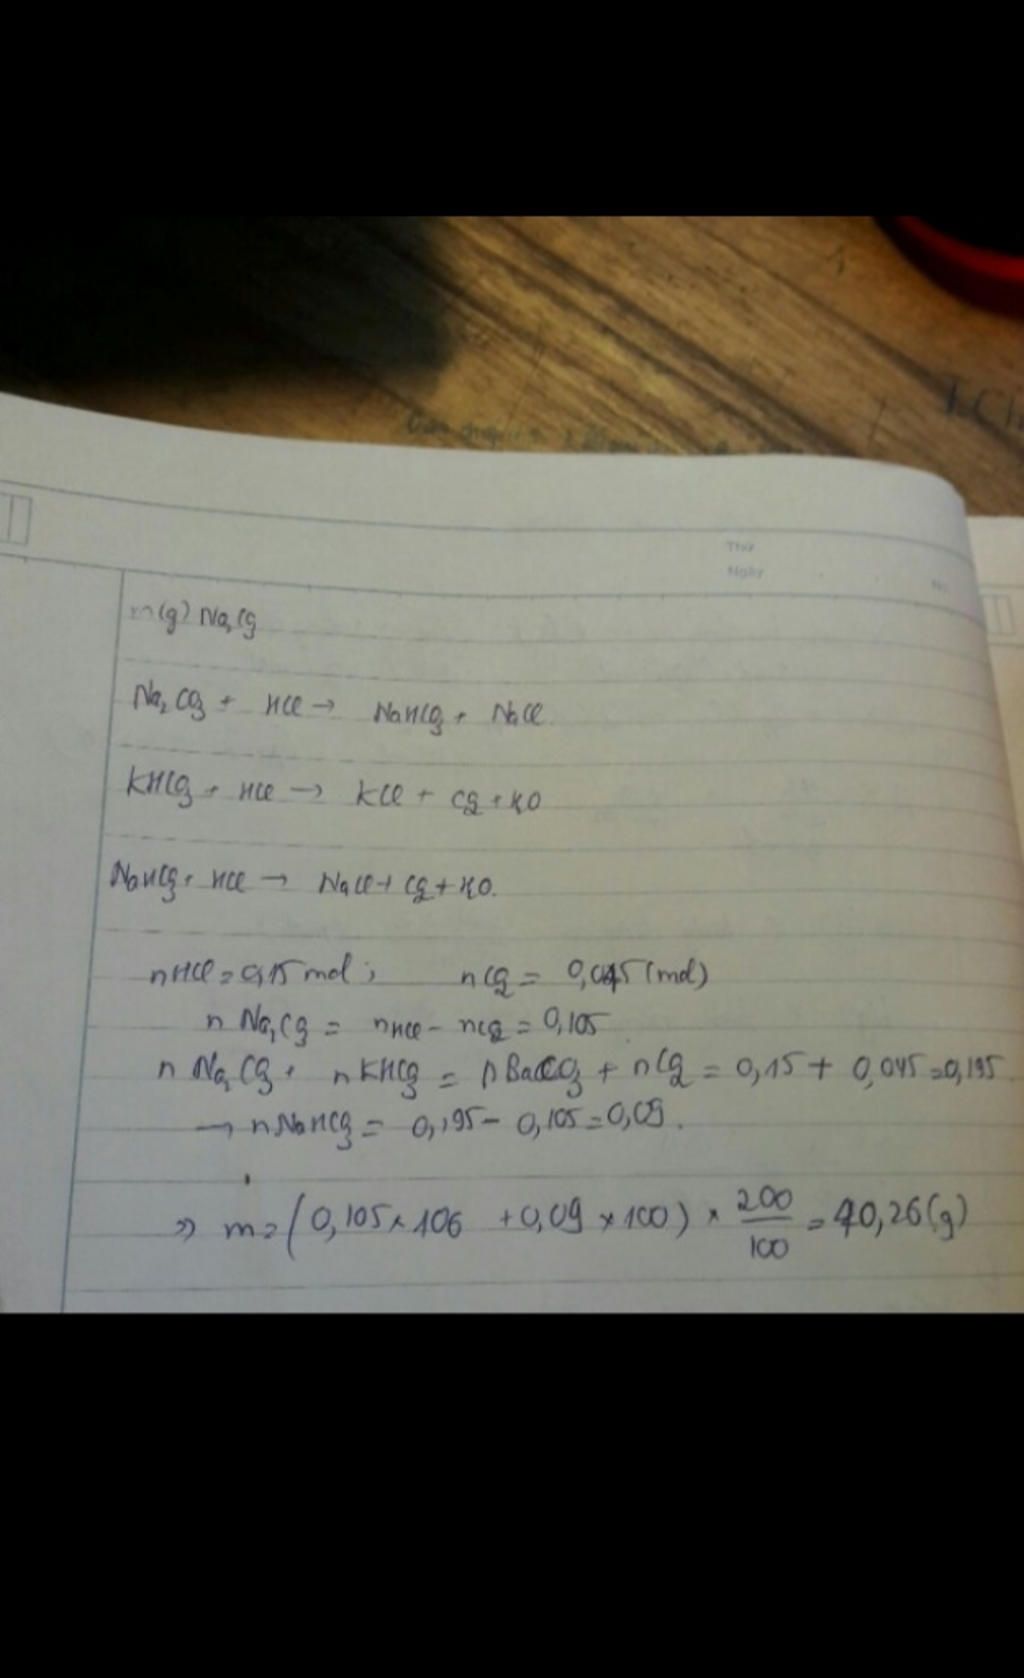 Thứ
Ngày
No.
m(g) Na₂CO₃
Na₂CO₃ + HCl → NaHCO₃ + NaCl.
KHCO₃ + HCl → KCl + CO₂ + H₂O
NaHCO₃ + HCl → NaCl + CO₂ + H₂O.
nHCl = 0,15 mol; nCO₂ = 0,045 (mol)
n Na₂CO₃ = nHCl - nCO₂ = 0,105
n Na₂CO₃ + nKHCO₃ = nBaCO₃ + nCO₂ = 0,15 + 0,045 = 0,195
→ nNaHCO₃ = 0,195 - 0,105 = 0,09.
=> m = (0,105 × 106 + 0,09 × 100) × 200/100 = 40,26 (g)